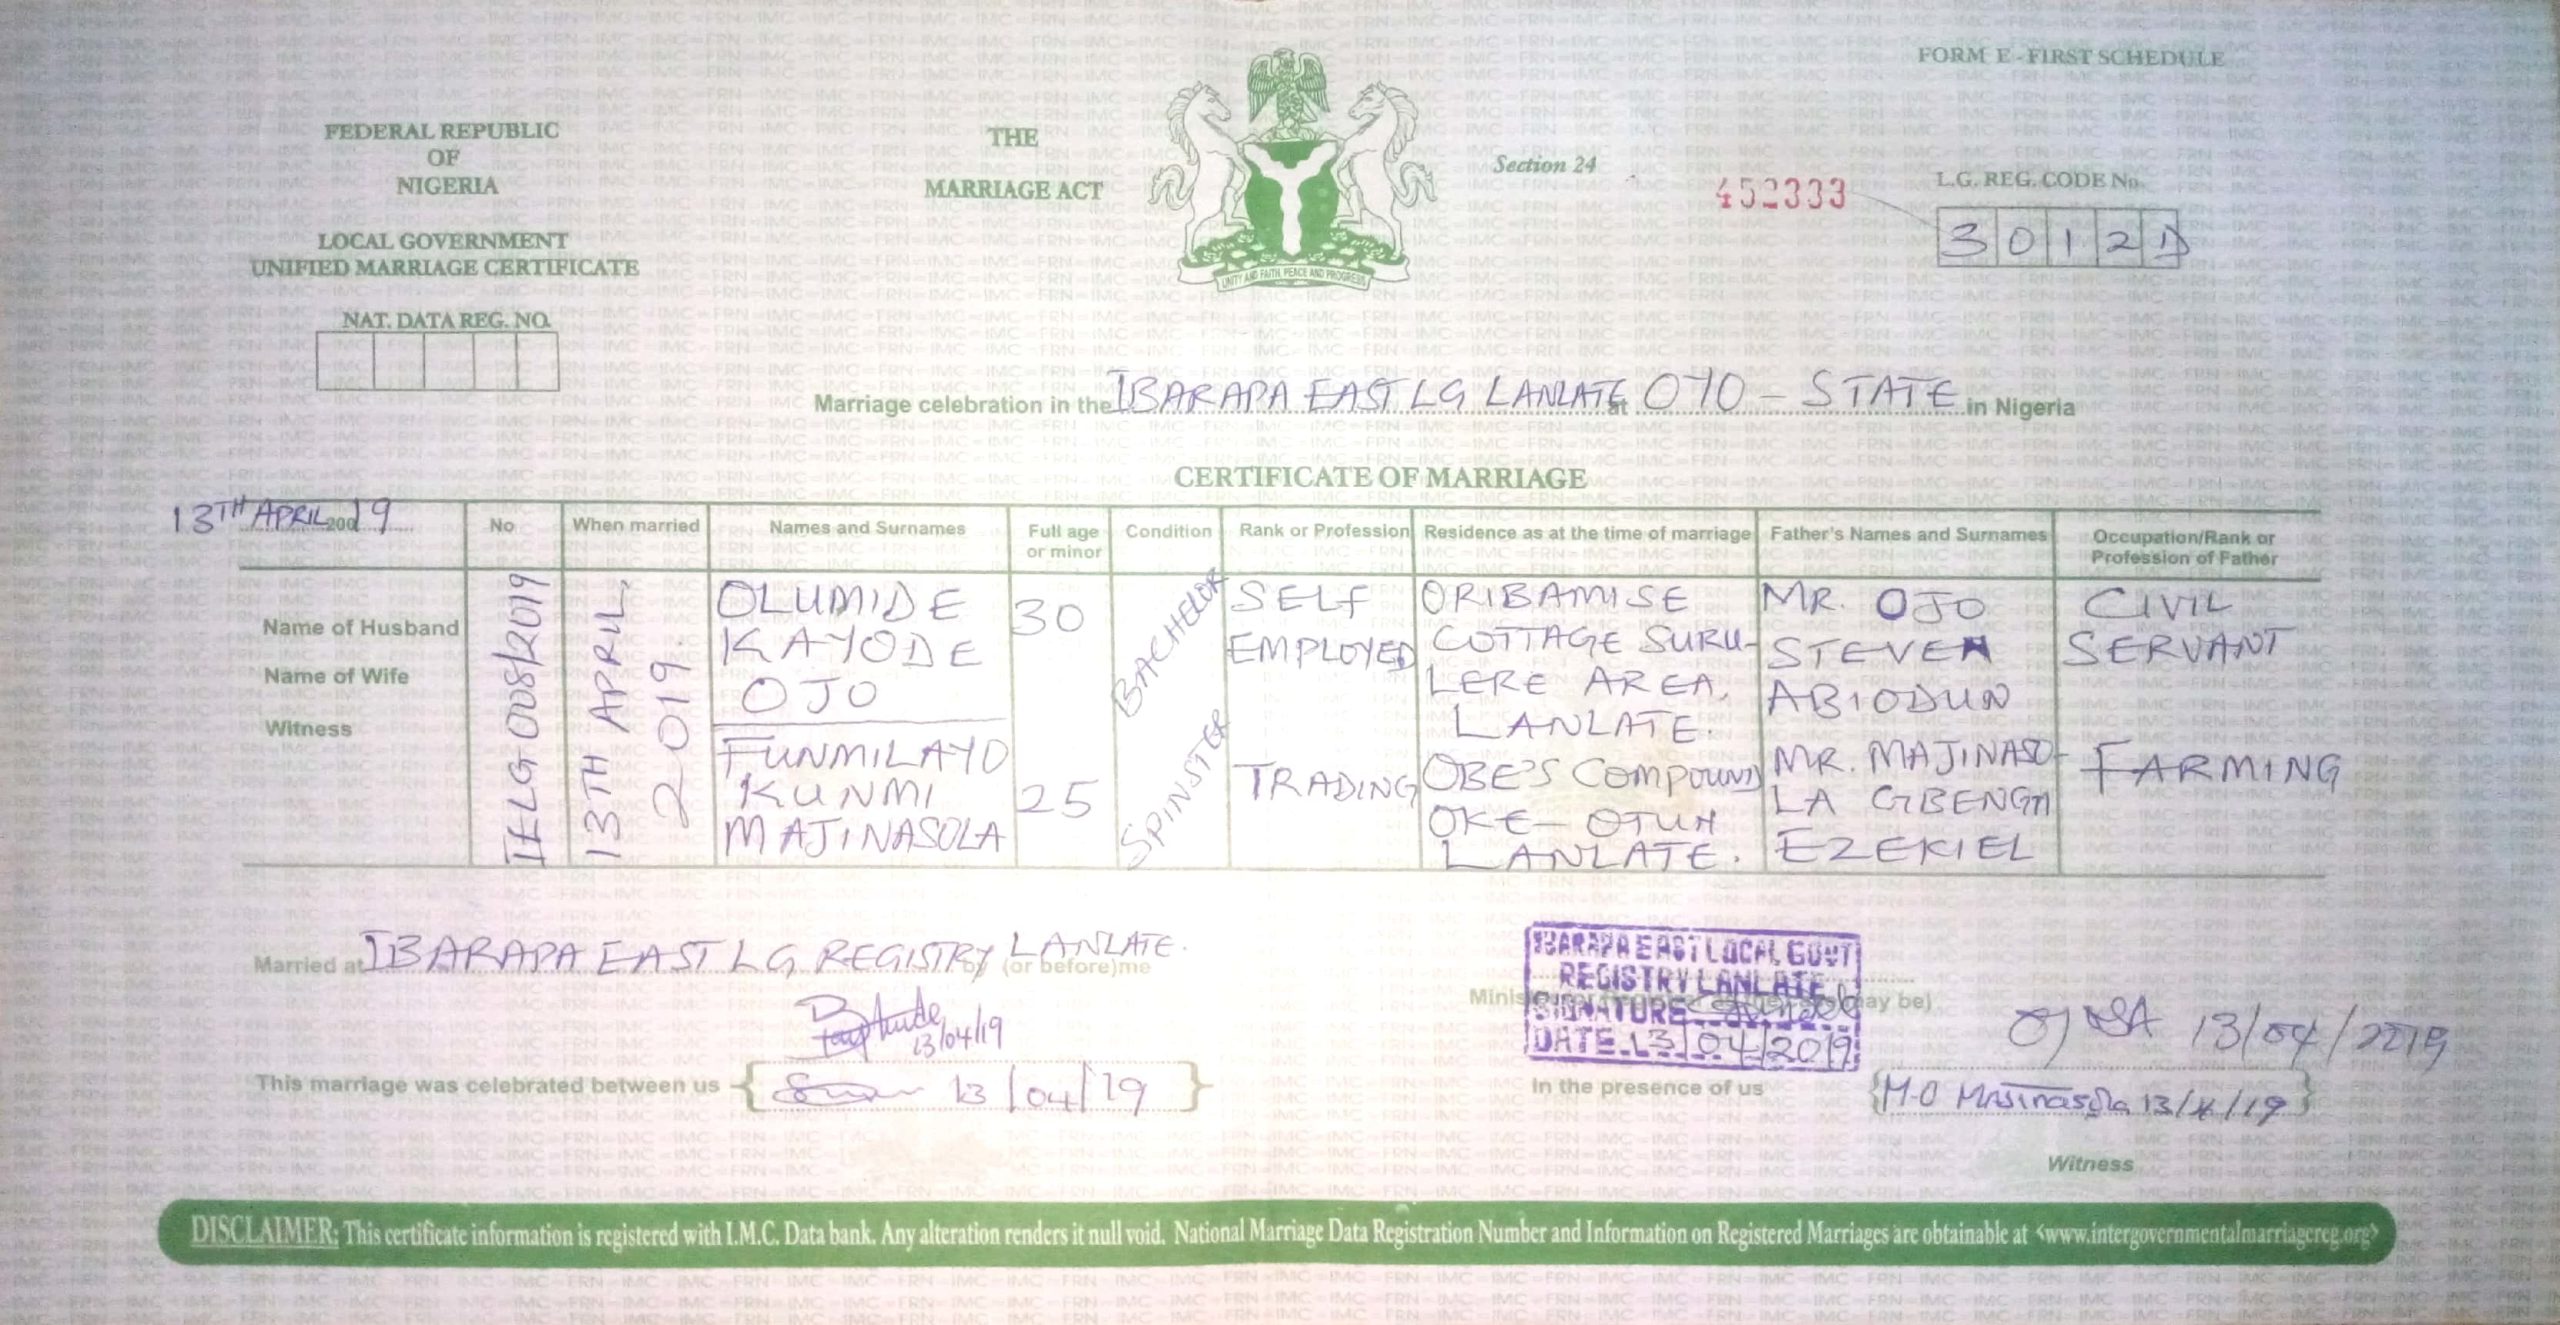 FORM E - FIRST SCHEDULE
FEDERAL REPUBLIC
OF
NIGERIA
THE
MARRIAGE ACT
UNITY AND FAITH, PEACE AND PROGRESS
Section 24
452333
L.G. REG. CODE No.
3012D
LOCAL GOVERNMENT
UNIFIED MARRIAGE CERTIFICATE
NAT. DATA REG. NO.
Marriage celebration in the IBARAPA EAST LG LANLATE at OYO - STATE in Nigeria
CERTIFICATE OF MARRIAGE
13TH APRIL 2019
No
When married
Names and Surnames
Full age
or minor
Condition
Rank or Profession
Residence as at the time of marriage
Father's Names and Surnames
Occupation/Rank or
Profession of Father
Name of Husband
Name of Wife
Witness
IELG 008/2019
13TH APRIL,
2019.
OLUMIDE
KAYODE
OJO
30
BACHELOR
SELF
EMPLOYED
ORIBAMISE
COTTAGE SURU-
LERE AREA,
LANLATE.
MR. OJO
STEVEN
ABIODUN
CIVIL
SERVANT
FUNMILAYO
KUNMI
MAJINASOLA
25
SPINSTER
TRADING
OBE'S COMPOUND
OKE-OTUN
LANLATE.
MR. MAJINASO-
LA GBENGA
EZEKIEL
FARMING
Married at IBARAPA EAST LG REGISTRY LANLATE.
by (or before) me
IBARAPA EAST LOCAL GOVT
REGISTRY LANLATE
SIGNATURE
DATE 13/04/2019
may be)
13/04/19
13/04/2019
This marriage was celebrated between us
13/04/19
In the presence of us
M.O Majinasola 13/4/19
Witness
DISCLAIMER: This certificate information is registered with I.M.C. Data bank. Any alteration renders it null void. National Marriage Data Registration Number and Information on Registered Marriages are obtainable at <www.intergovernmentalmarriagereg.org>